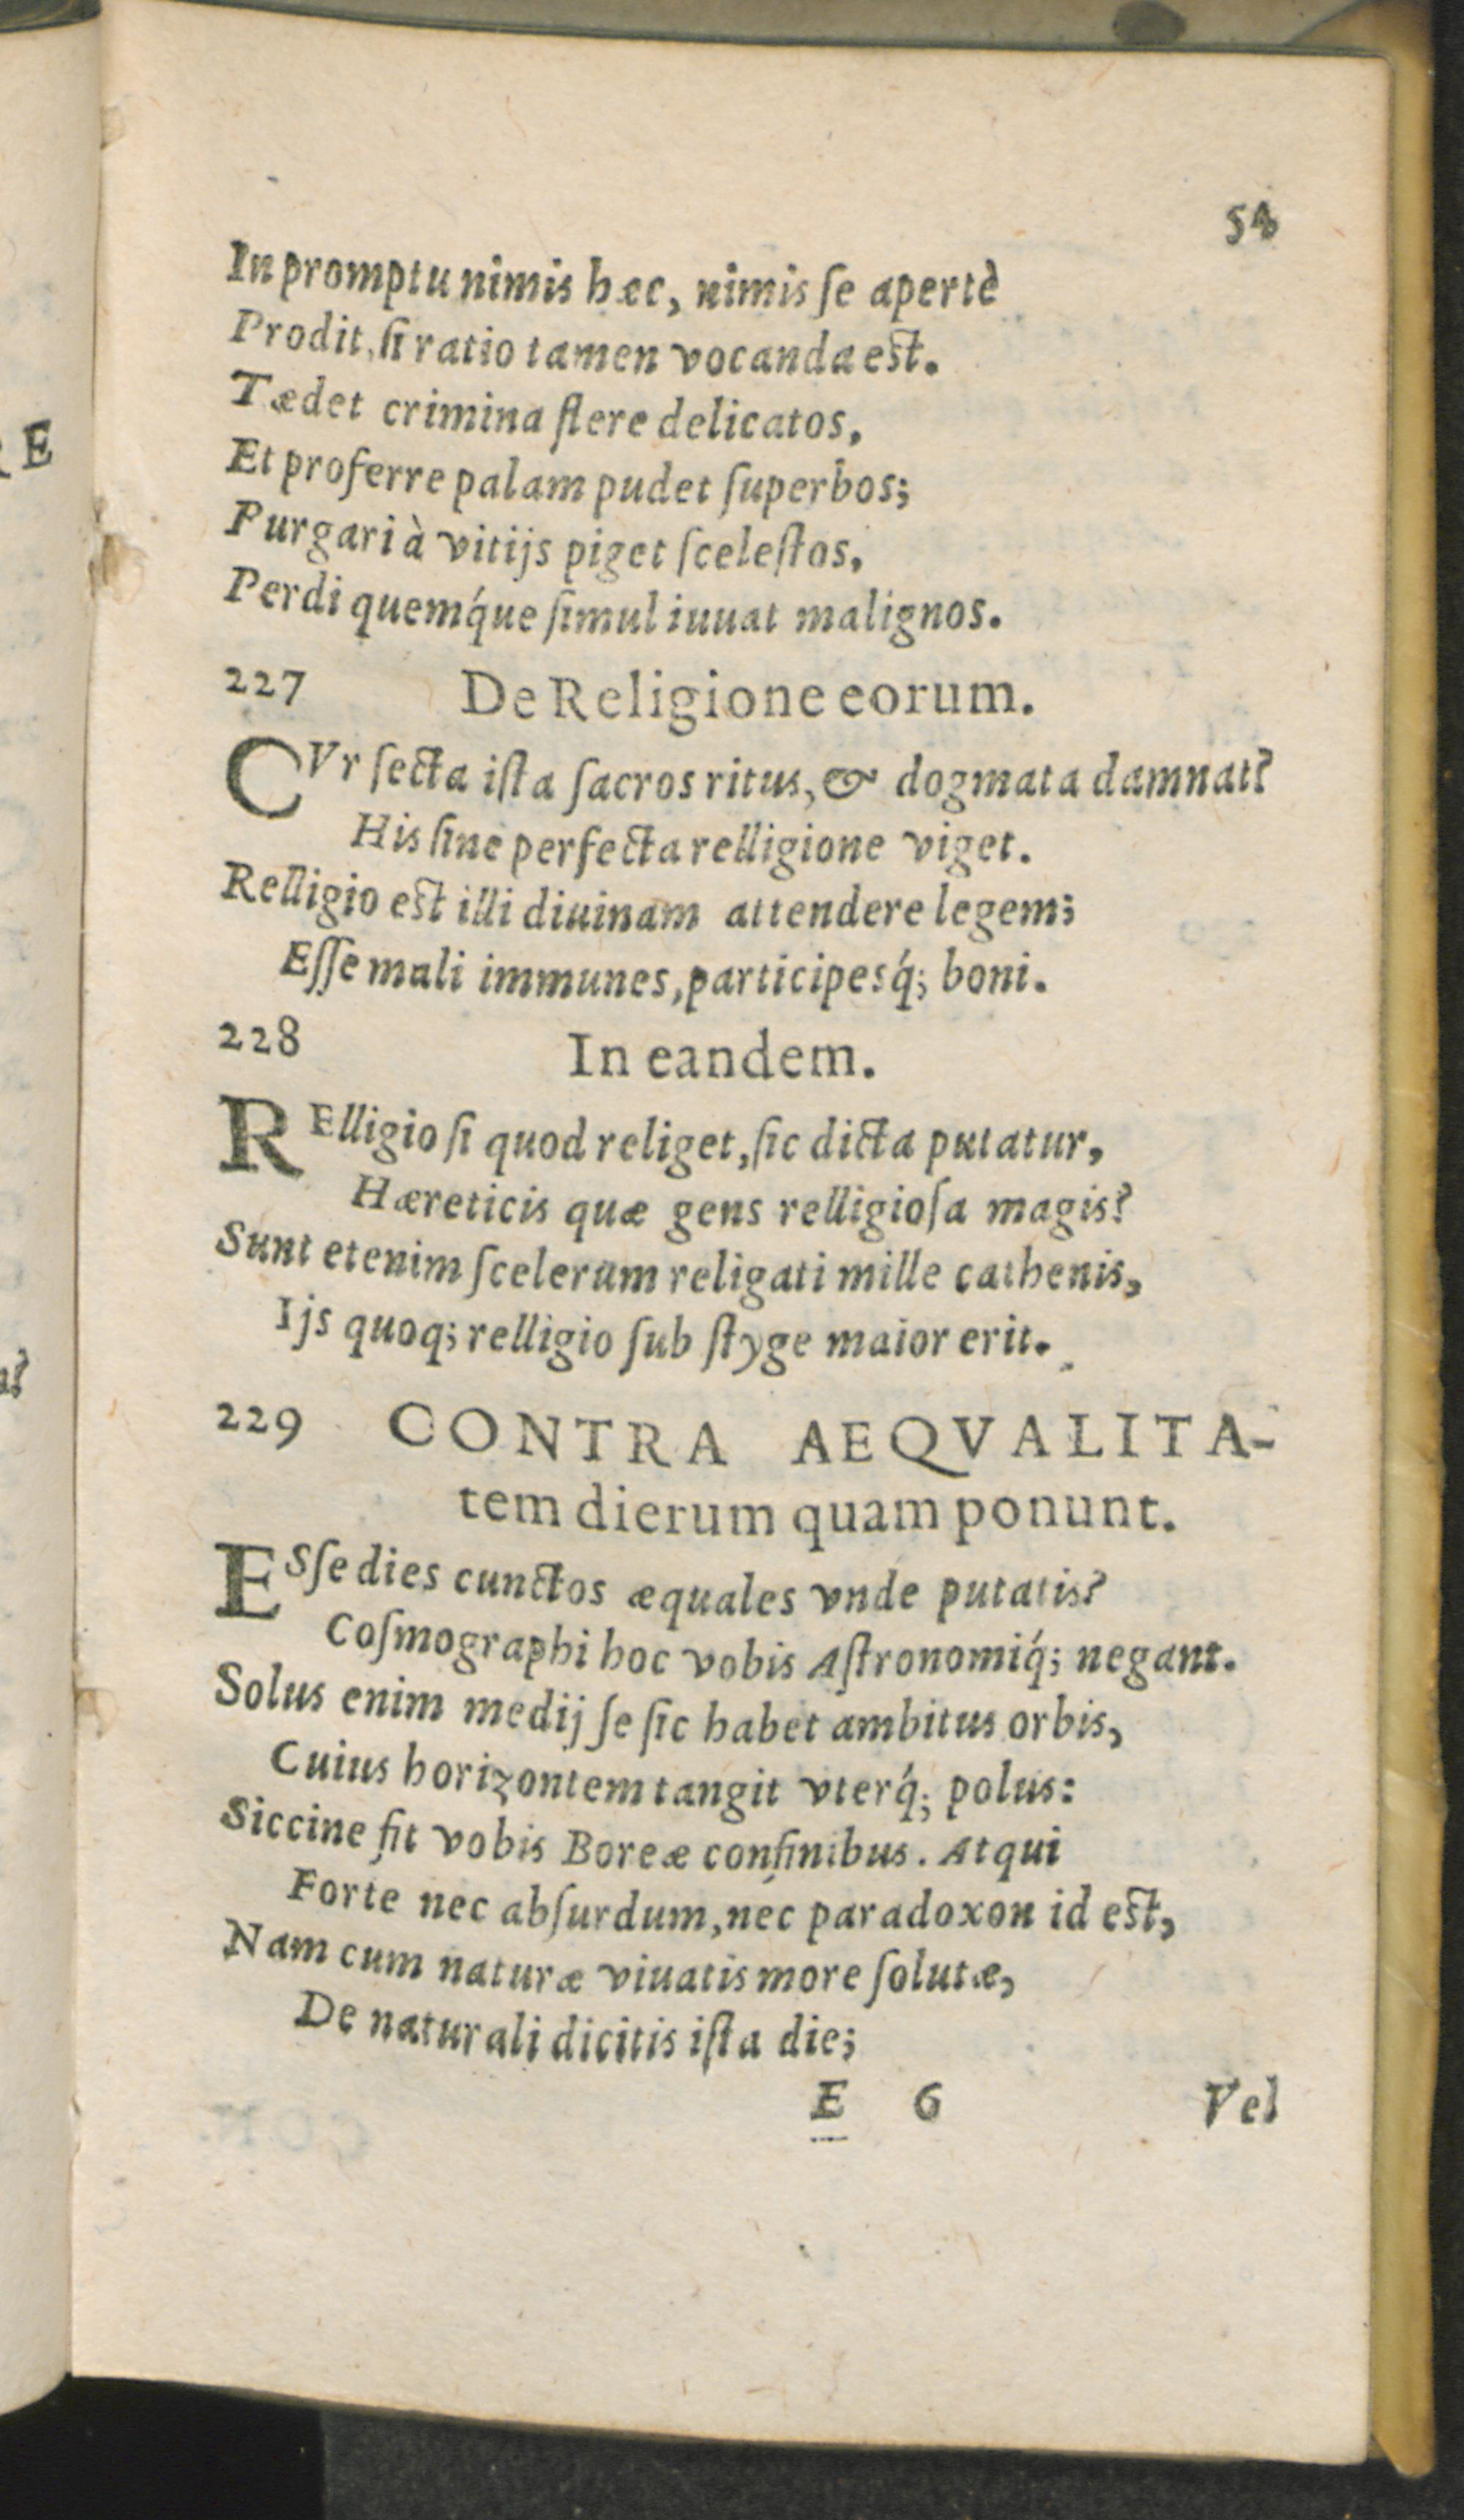 In promptu nimis hæc, nimis ſe apertè
Prodit, ſi ratio tamen vocanda est.
Tædet crimina flere delicatos,
Et proferre palam pudet ſuperbos;
Purgari à vitijs piget ſceleſtos,
Perdi quemq́ue ſimul iuuat malignos.
227 De Religione eorum.
CVr ſecta iſta ſacros ritus, & dogmata damnat?
His ſine perfecta relligione viget.
Relligio est illi diuinam attendere legem;
Eſſe mali immunes, participesq́; boni.
228 In eandem.
RElligio ſi quod religet, ſic dicta putatur,
Hæreticis quæ gens relligioſa magis?
Sunt etenim ſcelerum religati mille cathenis,
Ijs quoq; relligio ſub ſtyge maior erit.
229 CONTRA AEQVALITA-
tem dierum quam ponunt.
ESſe dies cunctos æquales vnde putatis?
Coſmographi hoc vobis Aſtronomiq́; negant.
Solus enim medij ſe ſic habet ambitus orbis,
Cuius horizontem tangit vterq́; polus:
Siccine fit vobis Boreæ confinibus. Atqui
Forte nec abſurdum, nec paradoxon id est,
Nam cum naturæ viuatis more ſolutæ,
De naturali dicitis iſta die;
E 6 Vel